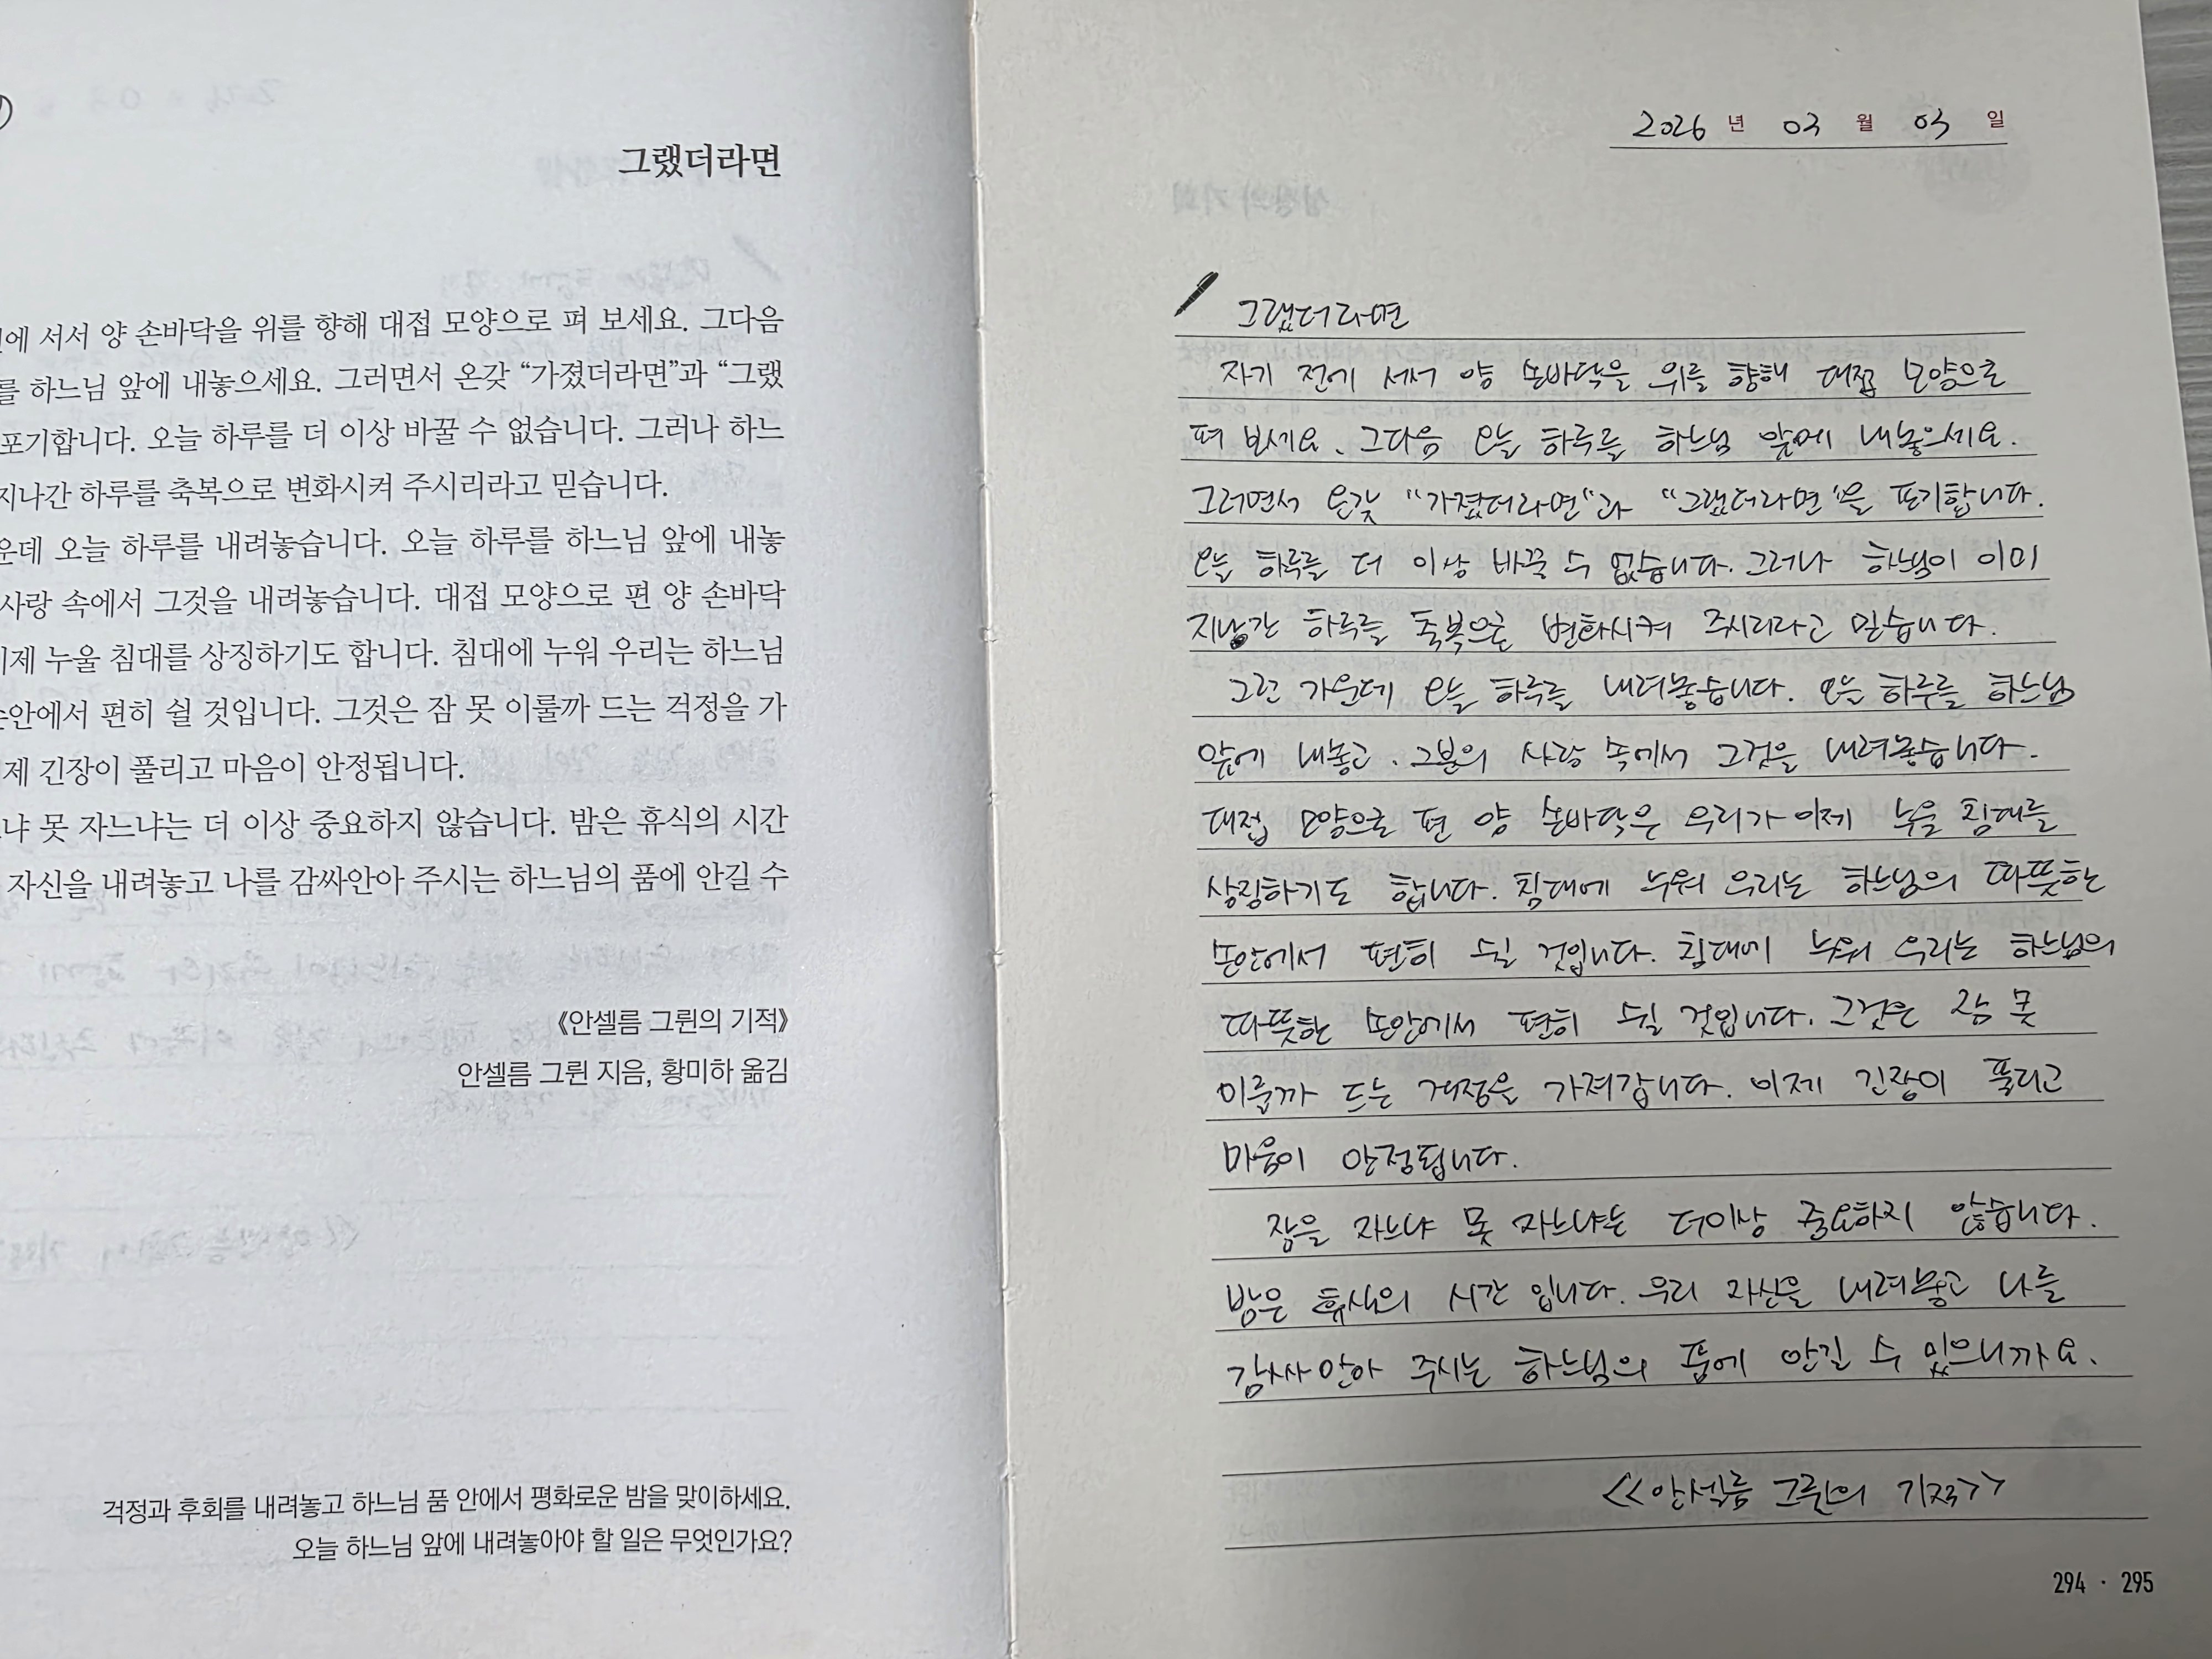 그랬더라면
에 서서 양 손바닥을 위를 향해 대접 모양으로 펴 보세요. 그다음
를 하느님 앞에 내놓으세요. 그러면서 온갖 “가졌더라면”과 “그랬
포기합니다. 오늘 하루를 더 이상 바꿀 수 없습니다. 그러나 하느
지나간 하루를 축복으로 변화시켜 주시리라고 믿습니다.
운데 오늘 하루를 내려놓습니다. 오늘 하루를 하느님 앞에 내놓
사랑 속에서 그것을 내려놓습니다. 대접 모양으로 편 양 손바닥
이제 누울 침대를 상징하기도 합니다. 침대에 누워 우리는 하느님
손안에서 편히 쉴 것입니다. 그것은 잠 못 이룰까 드는 걱정을 가
제 긴장이 풀리고 마음이 안정됩니다.
냐 못 자느냐는 더 이상 중요하지 않습니다. 밤은 휴식의 시간
자신을 내려놓고 나를 감싸안아 주시는 하느님의 품에 안길 수
《안셀름 그륀의 기적》
안셀름 그륀 지음, 황미하 옮김
걱정과 후회를 내려놓고 하느님 품 안에서 평화로운 밤을 맞이하세요.
오늘 하느님 앞에 내려놓아야 할 일은 무엇인가요?
2026 년 03 월 03 일
그랬더라면
자기 전에 서서 양 손바닥을 위를 향해 대접 모양으로
펴 보세요. 그다음 오늘 하루를 하느님 앞에 내놓으세요.
그러면서 온갖 “가졌더라면“과 “그랬더라면“을 포기합니다.
오늘 하루를 더 이상 바꿀 수 없습니다. 그러나 하느님이 이미
지나간 하루를 축복으로 변화시켜 주시리라고 믿습니다.
그런 가운데 오늘 하루를 내려놓습니다. 오늘 하루를 하느님
앞에 내놓고, 그분의 사랑 속에서 그것을 내려놓습니다.
대접 모양으로 편 양 손바닥은 우리가 이제 누울 침대를
상징하기도 합니다. 침대에 누워 우리는 하느님의 따뜻한
손안에서 편히 쉴 것입니다. 침대에 누워 우리는 하느님의
따뜻한 손안에서 편히 쉴 것입니다. 그것은 잠 못
이룰까 드는 걱정을 가져갑니다. 이제 긴장이 풀리고
마음이 안정됩니다.
잠을 자느냐 못 자느냐는 더이상 중요하지 않습니다.
밤은 휴식의 시간 입니다. 우리 자신을 내려놓고 나를
감싸안아 주시는 하느님의 품에 안길 수 있으니까요.
<<안셀름 그륀의 기적>>
294 · 295